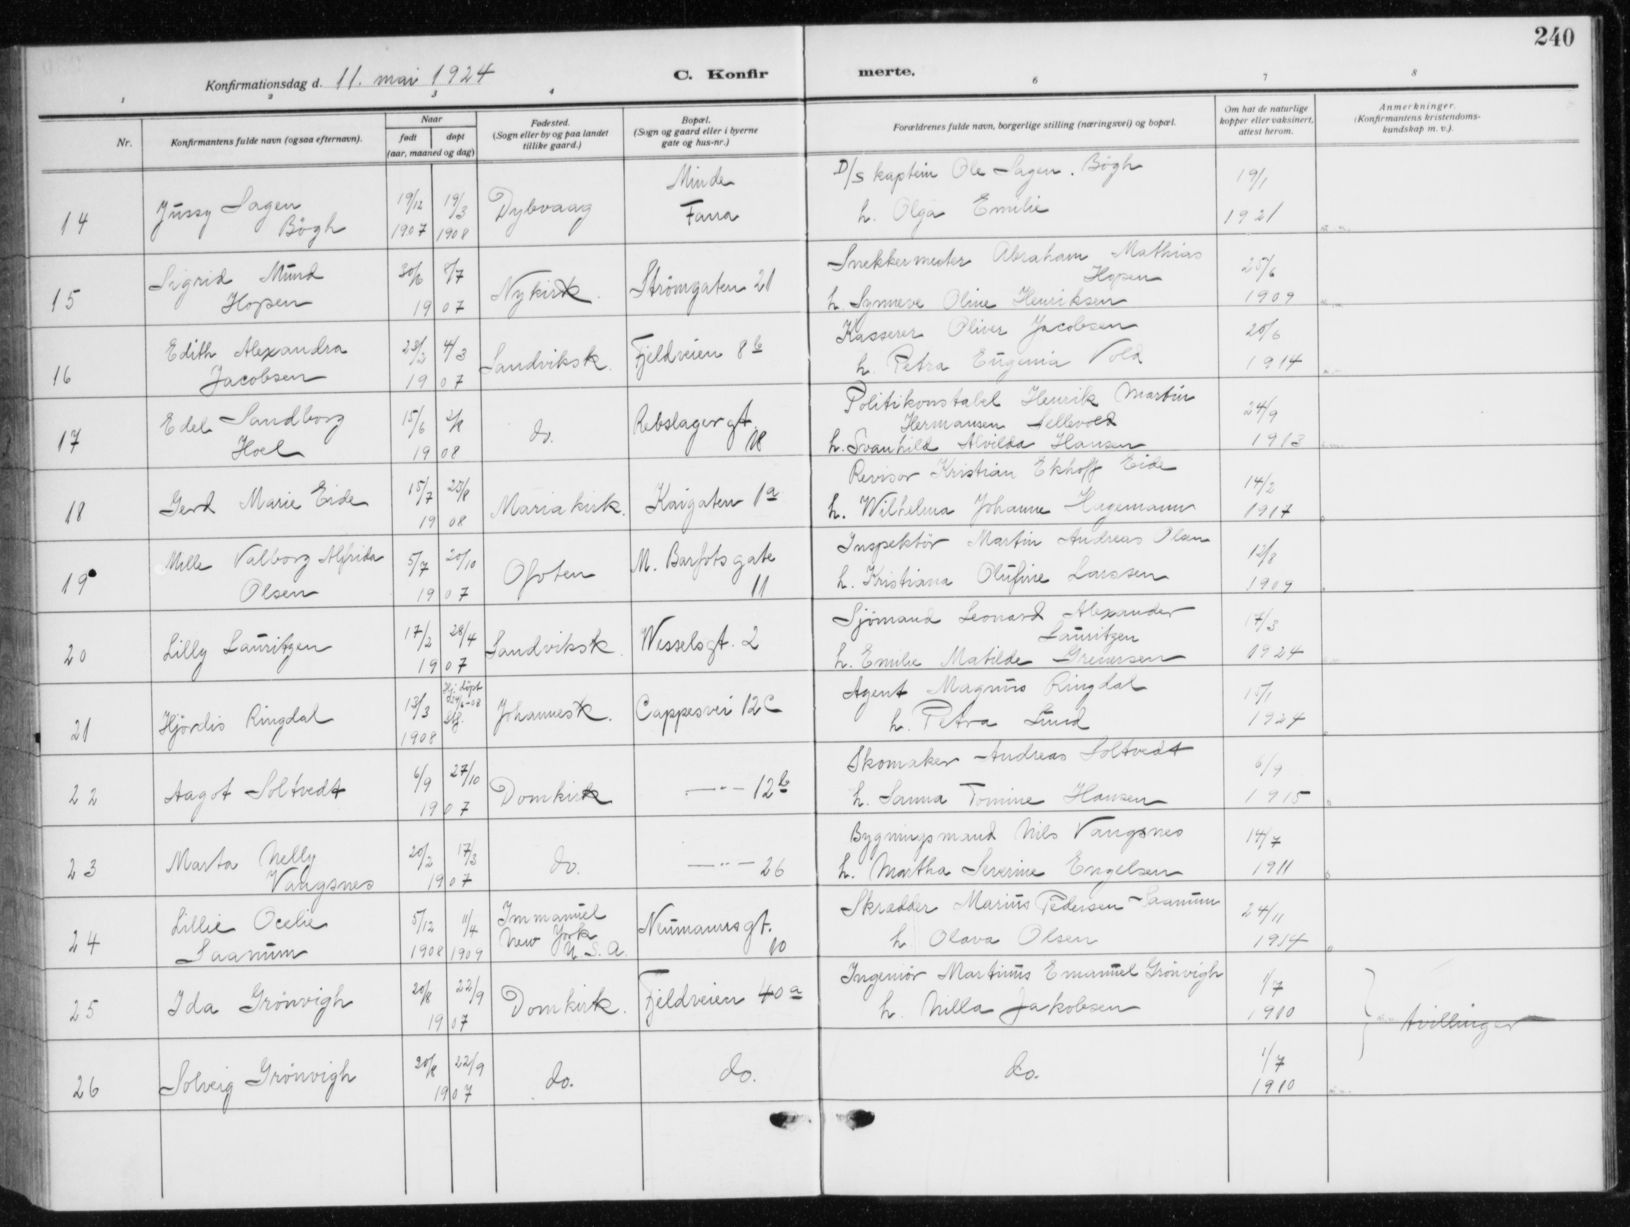 240
Konfirmationsdag d. 11. mai 1924 C. Konfir merte.
1 2 3 4 6 7 8
Nr. Konfirmantens fulde navn (ogsaa efternavn). Naar født døpt (aar, maaned og dag) Fødested. (Sogn eller by og paa landet tillike gaard.) Bopæl. (Sogn og gaard eller i byerne gate og hus-nr.) Forældrenes fulde navn, borgerlige stilling (næringsvei) og bopæl. Om hat de naturlige kopper eller vaksinert, attest herom. Anmerkninger. (Konfirmantens kristendomskundskap m. v.).
14 Jussy Sagen Bögh 19/12 1907 19/3 1908 Dybvaag Minde Fana D/s kaptein Ole Sagen Bögh
h. Olga Emilie 19/1 1921
15 Sigrid Mund Hopen 1907 Nykirk. Strömgaten 21 Snekkermester Abraham Mathias Hopen
h. Synneve Oline Henriksen 25/6 1909
16 Edith Alexandra Jacobsen 4/3 1907 Sandviksk. Fjeldveien 8 b Kasserer Oliver Jacobsen
h. Petra Eugenia Vold 20/6 1914
17 Edel Sandborg Hoel 15/6 2/8 1908 do. Rebslagergt. 18 Politikonstabel Henrik Martin Hermansen Sellevold
h. Svanhild Alvilda Hansen 24/9 1913
18 Gerd Marie Eide 15/7 23/8 1908 Mariakirk. Kaigaten 1 a Revisor Kristian Ekhoff Eide
h. Wilhelma Johanne Hagemann 14/2 1917
19 Mille Valborg Alfrida Olsen 5/7 20/10 1907 Ofoten M. Barfots gate 11 Inspektör Martin Andreas Olsen
h. Kristiana Olufine Larssen 12/8 1909
20 Lilly Lauritzen 17/2 28/4 1907 Sandviksk. Wesselsgt. 2 Sjömand Leonard Alexander Lauritzen
h. Emilie Matilde 17/3 1924
21 Hjördis Ringdal 13/3 1908 Hj. döpt Johannesk. Cappesvei 12 C Agent Magnus Ringdal
h. Petra Lund 15/1 1924
22 Aagot Soltvedt 6/9 27/10 1907 Domkirk — " — 12 b Skomaker Andreas Soltvedt
h. Sanna Tomine Hansen 6/9 1915
23 Marta Nelly Vangsnes 20/2 17/3 1907 do. — " — 26 Bygningsmand Nils Vangsnes
h. Martha Severine Engelsen 14/7 1911
24 Lillie Ocelie Saanum 5/12 1908 11/4 1909 Immanuel New York U. S. A. Neumannsgt. 10 Skrædder Marius Pedersen Saanum
h. Olava Olsen 24/11 1914
25 Ida Grönvigh 20/8 22/9 1907 Domkirk. Fjeldveien 40 a Ingeniör Martinus Emanuel Grönvigh
h. Nilla Jakobsen 1/7 1910 tvillinger
26 Solveig Grönvigh 20/8 22/9 1907 do. do. do. 1/7 1910